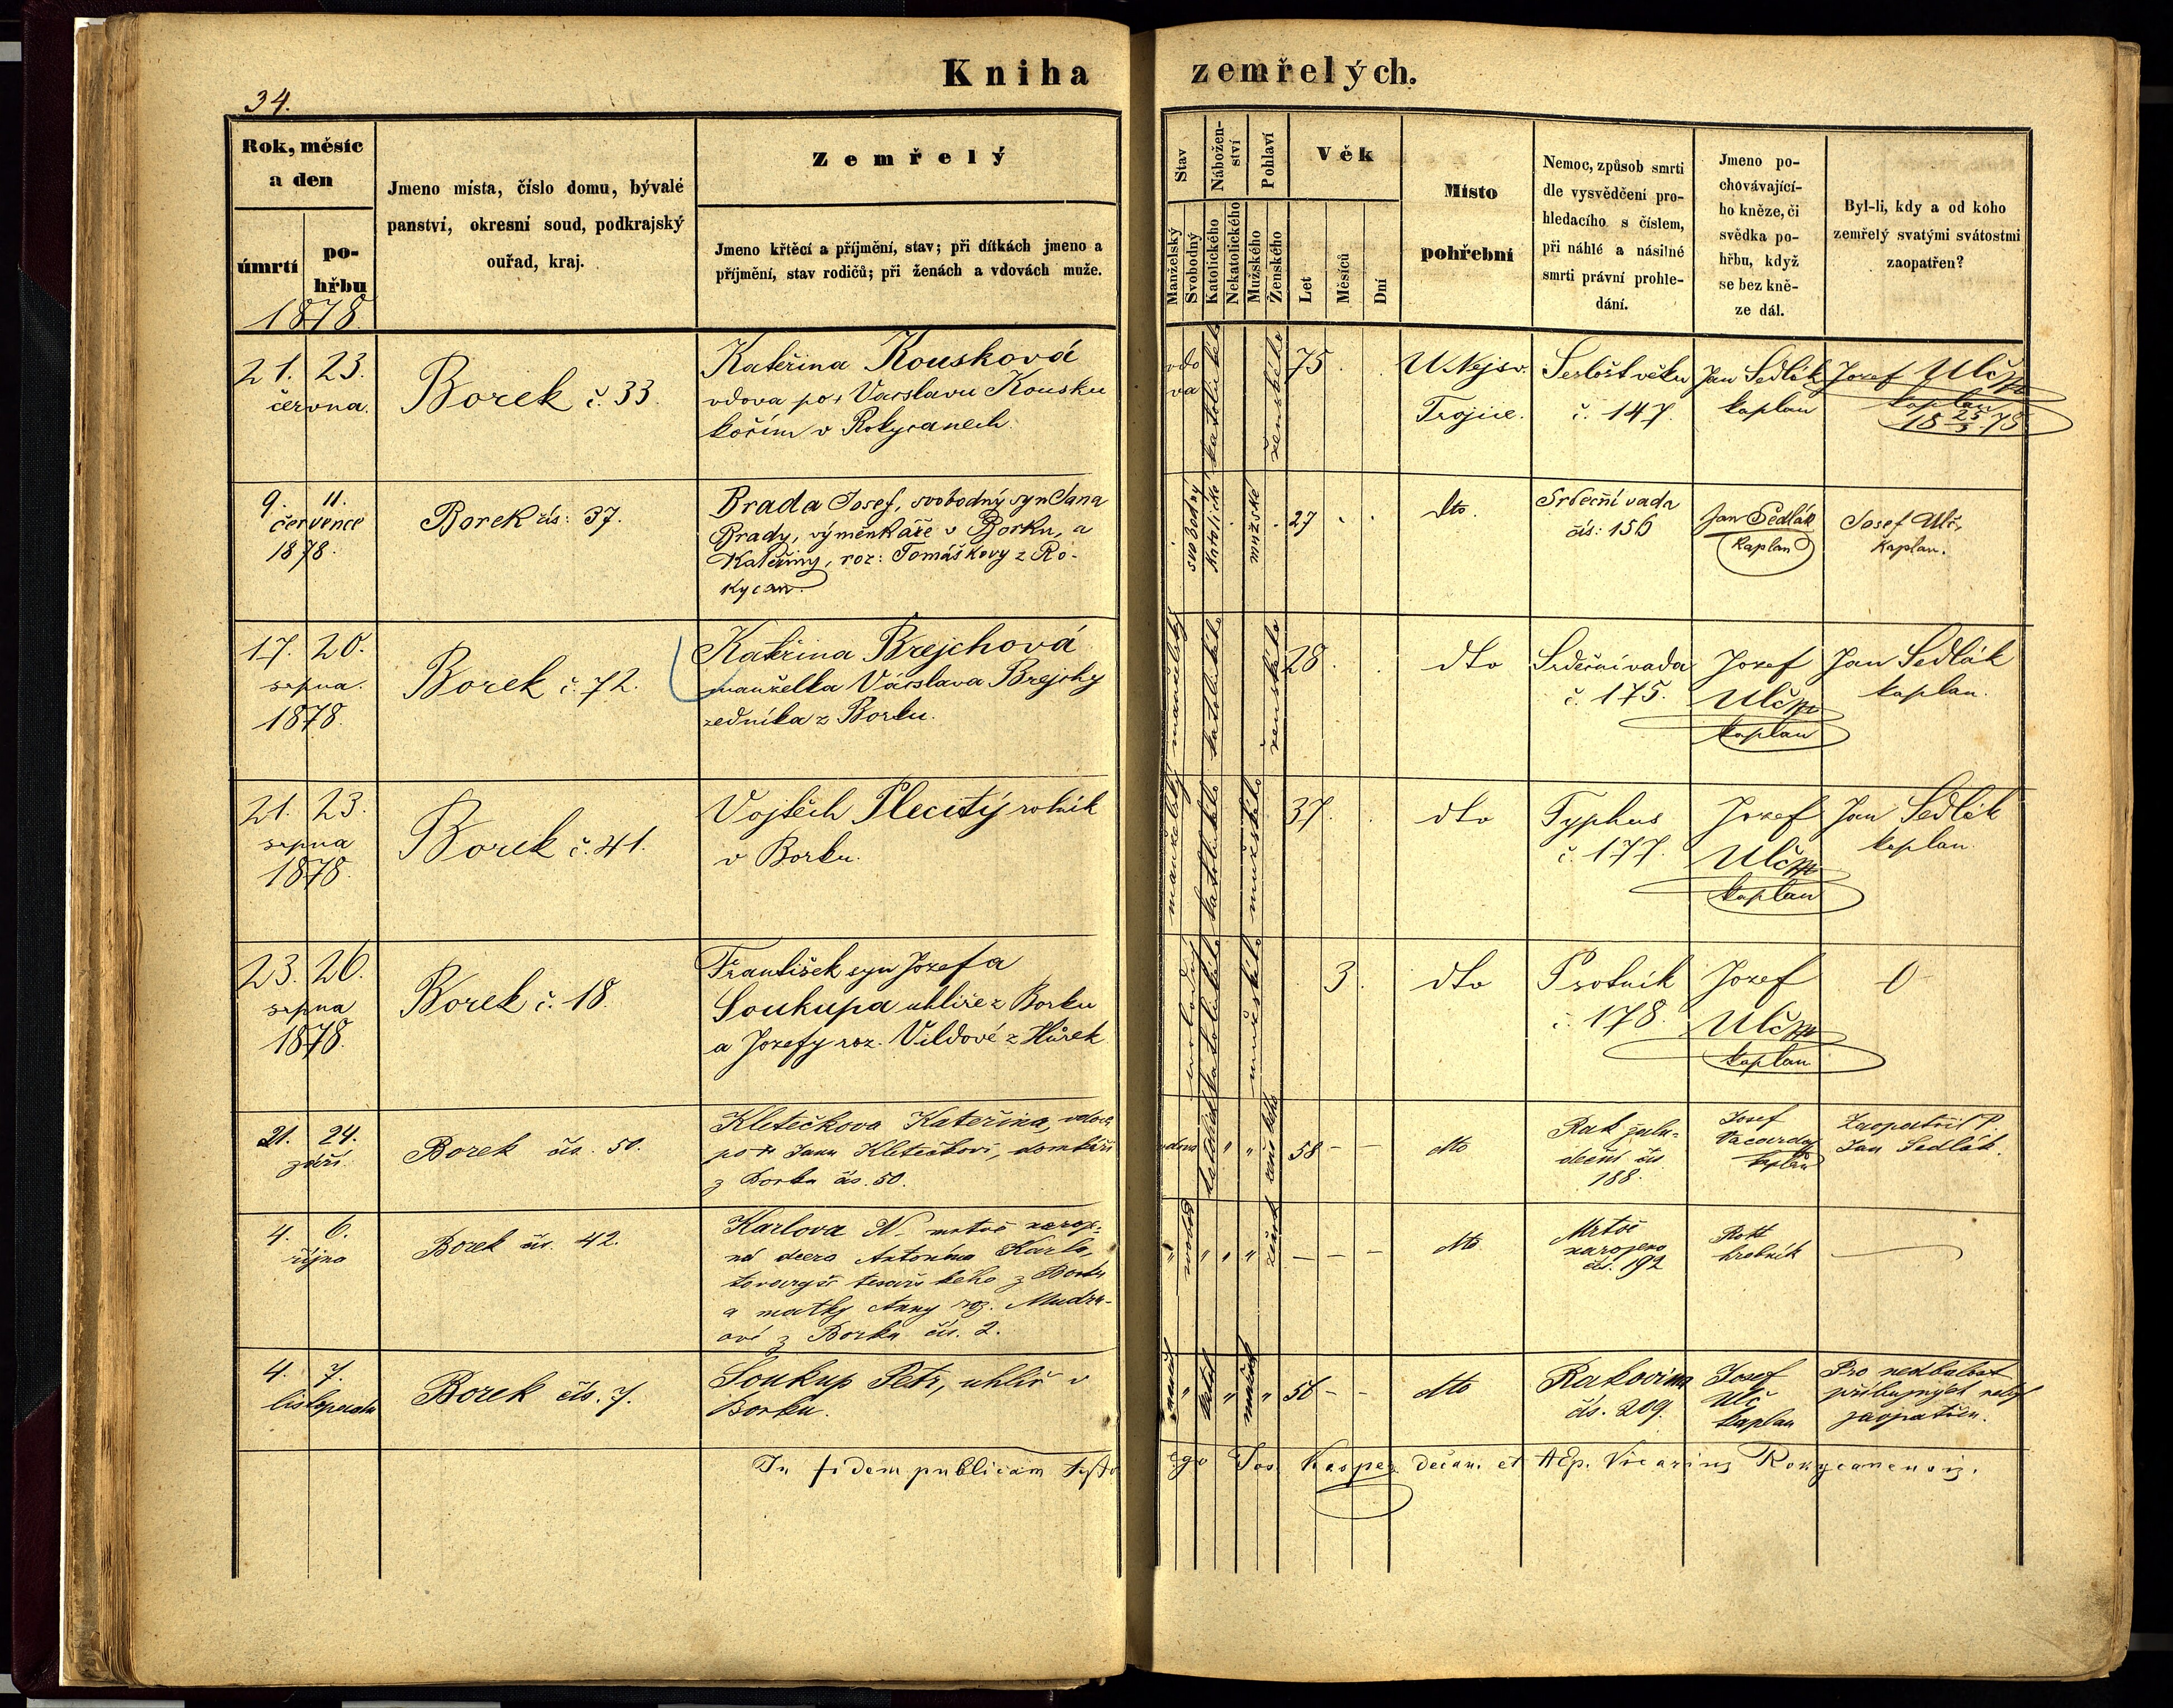 Kniha zemřelých.
34.
Rok, měsíc a den
úmrtí
pohřbu
1878
Jmeno místa, číslo domu, bývalé
panství, okresní soud, podkrajský
ouřad, kraj.
Zemřelý
Jmeno křtěcí a příjmění, stav; při dítkách jmeno a
příjmění, stav rodičů; při ženách a vdovách muže.
Stav
Manželský
Svobodný
Nábožen-
ství
Katolického
Nekatolického
Pohlaví
Mužského
Ženského
Věk
Let
Měsíců
Dní
Místo
pohřební
Nemoc, způsob smrti
dle vysvědčení pro-
hledacího s číslem,
při náhlé a násilné
smrti právní prohle-
dání.
Jmeno po-
chovávající-
ho kněze, či
svědka po-
hřbu, když
se bez kně-
ze dál.
Byl-li, kdy a od koho
zemřelý svatými svátostmi
zaopatřen?
21. 23.
června.
Borek č. 33.
Kateřina Kousková
vdova po + Václavu Kousku
v Rokycanech.
vdo
va
katolického
ženského
75.
U Nejsv.
Trojice.
Sešlost věku
č. 147.
Jan Sedlák
kaplan
Jozef Ulč
kaplan
18 25/3 78
9. 11.
července
1878.
Borek čís: 37.
Brada Josef, svobodný syn Jana
Brady, výměnkáře v Borku, a
Kateřiny, roz: Tomáškovy z Ro-
kycan.
svobodný
katolické
mužské
27
dto.
Srdeční vada
čís: 156
Jan Sedlák
kaplan
Josef Ulč,
kaplan.
17. 20.
srpna.
1878.
Borek č. 72.
Kateřina Brejchová
manželka Václava Brejchy
zedníka z Borku.
manželský
katolického
ženského
28.
dto
Srdeční vada
č. 175.
Jozef
Ulč
kaplan
Jan Sedlák
kaplan.
21. 23.
srpna
1878.
Borek č. 41.
Vojtěch Plecitý rolník
v Borku.
manželský
katolického
mužského
37.
dto
Typhus
č. 177.
Jozef
Ulč
kaplan
Jan Sedlák
kaplan.
23. 26.
srpna
1878.
Borek č. 18.
František syn Jozefa
Soukupa uhlíře z Borku
a Jozefy roz. Vildové z Hůrek
svobodný
katolického
mužského
3.
dto
Psotník
č. 178.
Jozef
Ulč
kaplan
0
21. 24.
září.
Borek čís. 50.
Kletečkova Kateřina, vdova
po + Janu Kletečkovi, domkáři
z Borku čís. 50.
vdova
ženského
58 - -
dto
Rak žalu-
deční čís.
188.
Josef
Vacarda
kaplan
Zaopatřil P.
Jan Sedlák.
4. 6.
října
Borek čís. 42.
Karlova N. mrtvě naroze-
ná dcera Antonína Karla,
tovaryše tesařského z Borku
a matky Anny roz. Mudro-
ové z Borku čís. 2.
- - -
dto
Mrtvě
narozena
čís. 192
Rott
hrobník
4. 7.
listopadu
Borek čís. 7.
Soukup Petr, uhlíř v
Borku.
56 - -
dto
Rakovina
čís. 209.
Josef
Ulč
kaplan
Pro nedbalost
příbuzných nebyl
zaopatřen.
In fidem publicam testor ego Jos. Kasper decan. et AEp. Vicarius Rokycanensis.